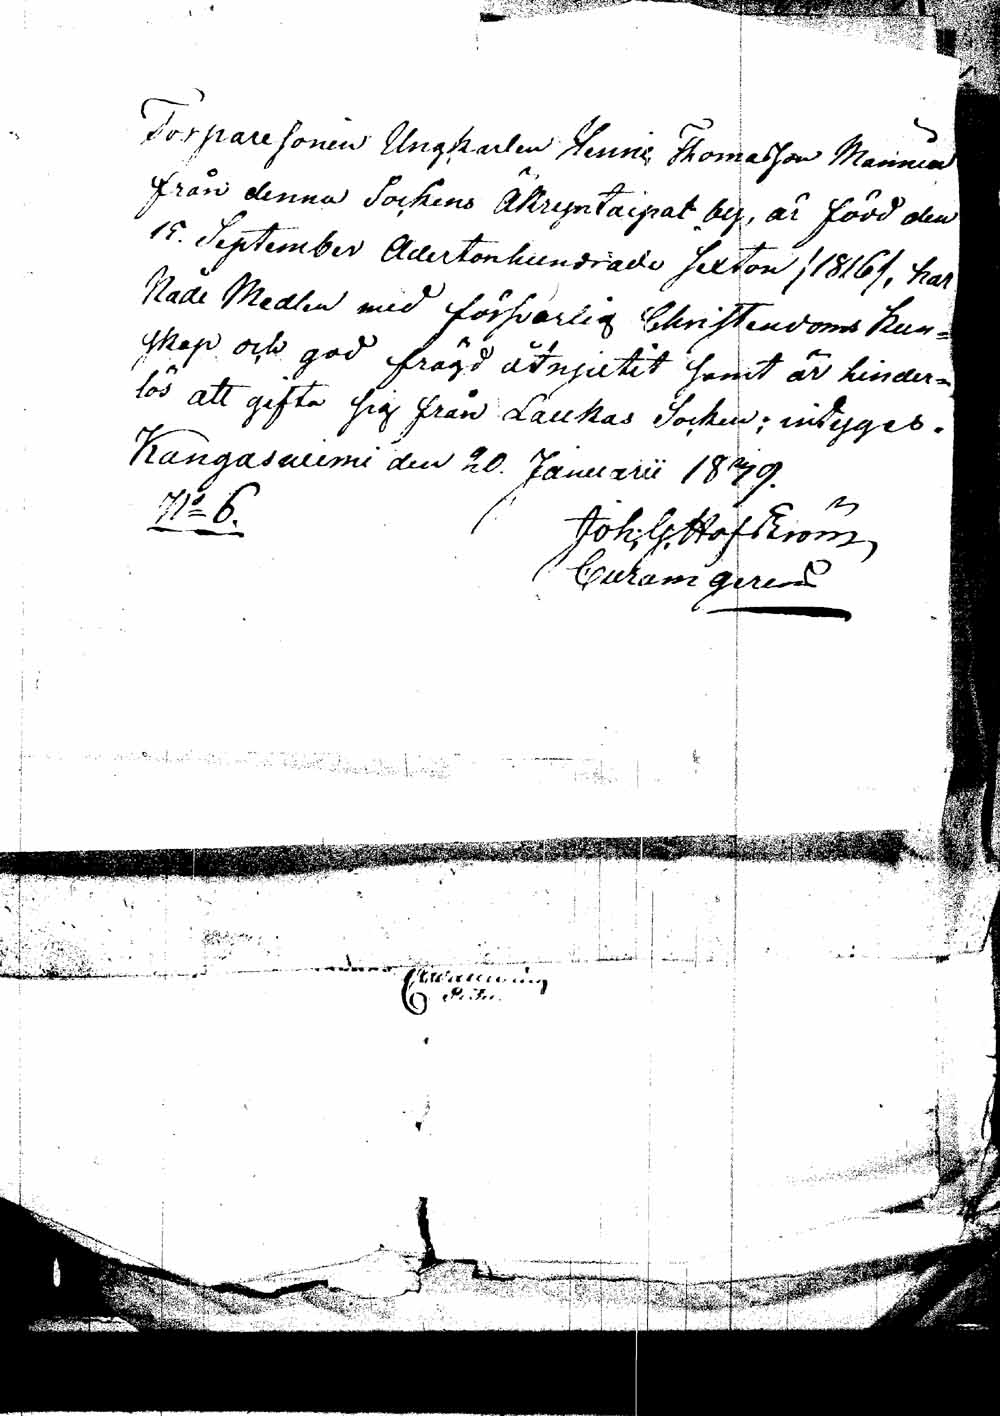 Torparesonen Ungkarlen Henric Thomasson Manninen
från denna Sockens Äkryntaipal by, är född den
15. September Adertonhundrade Sexton /1816/, har
Nåde Medlen med försvarlig Christendoms Kun=
skap och god frägd åtnjutit samt är hinder=
lös att gifta sig från Laukas Socken; intygas.
Kangasniemi den 20. Januarii 1839.
No 6.
Joh. G. Hofström
Curam gerens